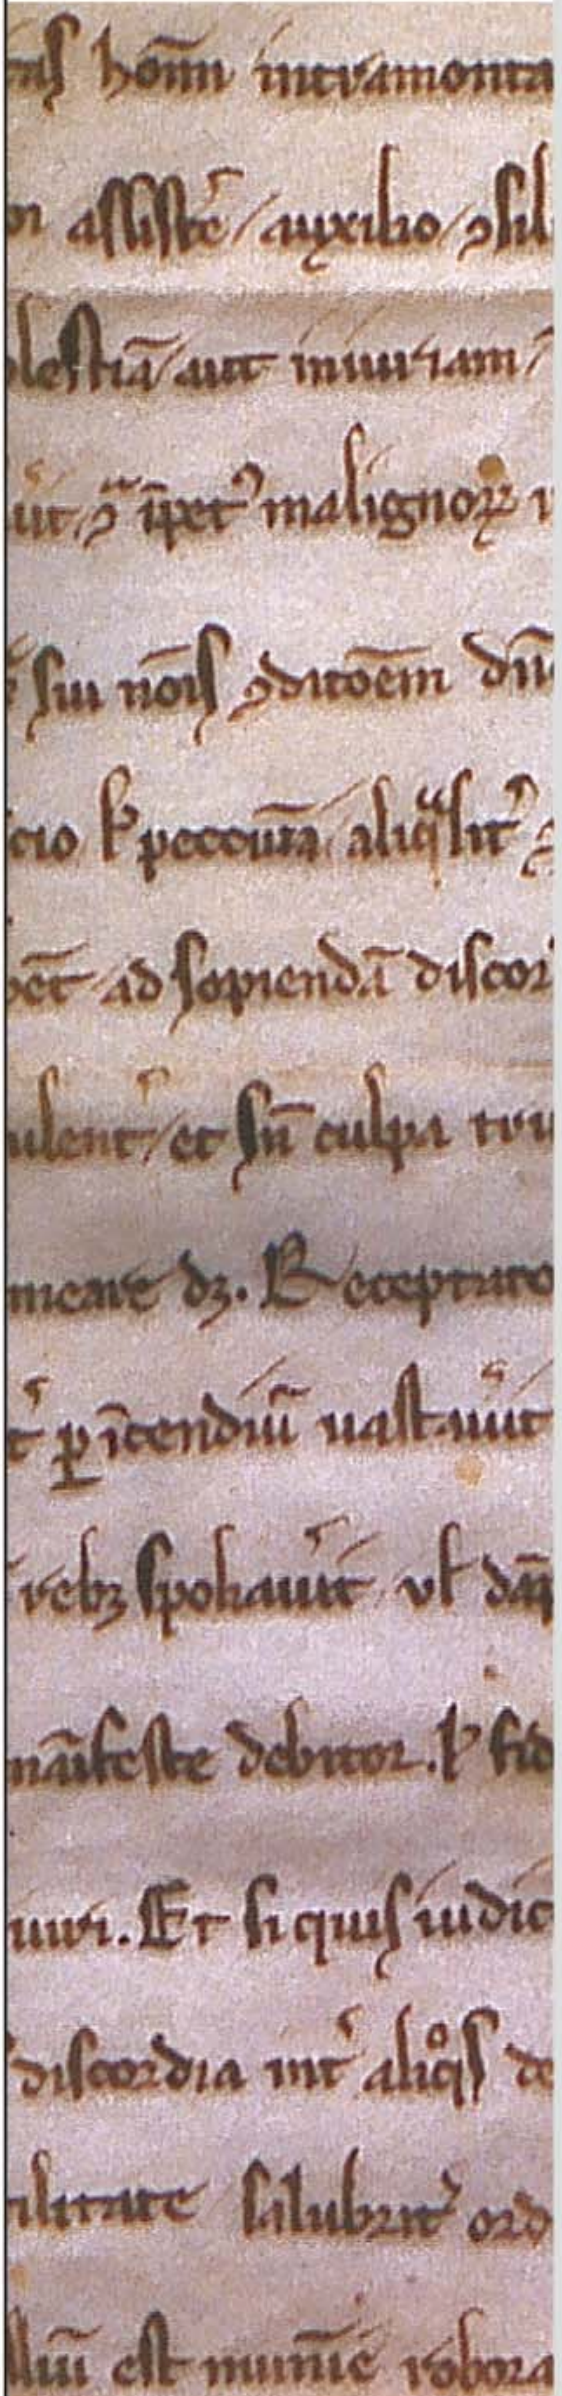 tas hoīm intramonta
or assistē auxilio ꝯsil
lestiā aut iniuriam
ūit, ꝯͣ īpetꝰ malignoꝝ
sui nōis ꝯditōem dn̄o
cio ł peccunia aliqͣlit͛
ēt ad sopiendā discor
ulent͛ et sn̄ culpa tru
meare dꝫ. Receptato
t͛ ꝑ īcendiū uastau͛it
rebꝫ spoliau͛it ul̄ dāp
māifeste debitor. ł fid
iuri. Et si quis iudic
discordia int͛ aliqͦs de
ilitate salubrit͛ ord
lliū est munīe robora